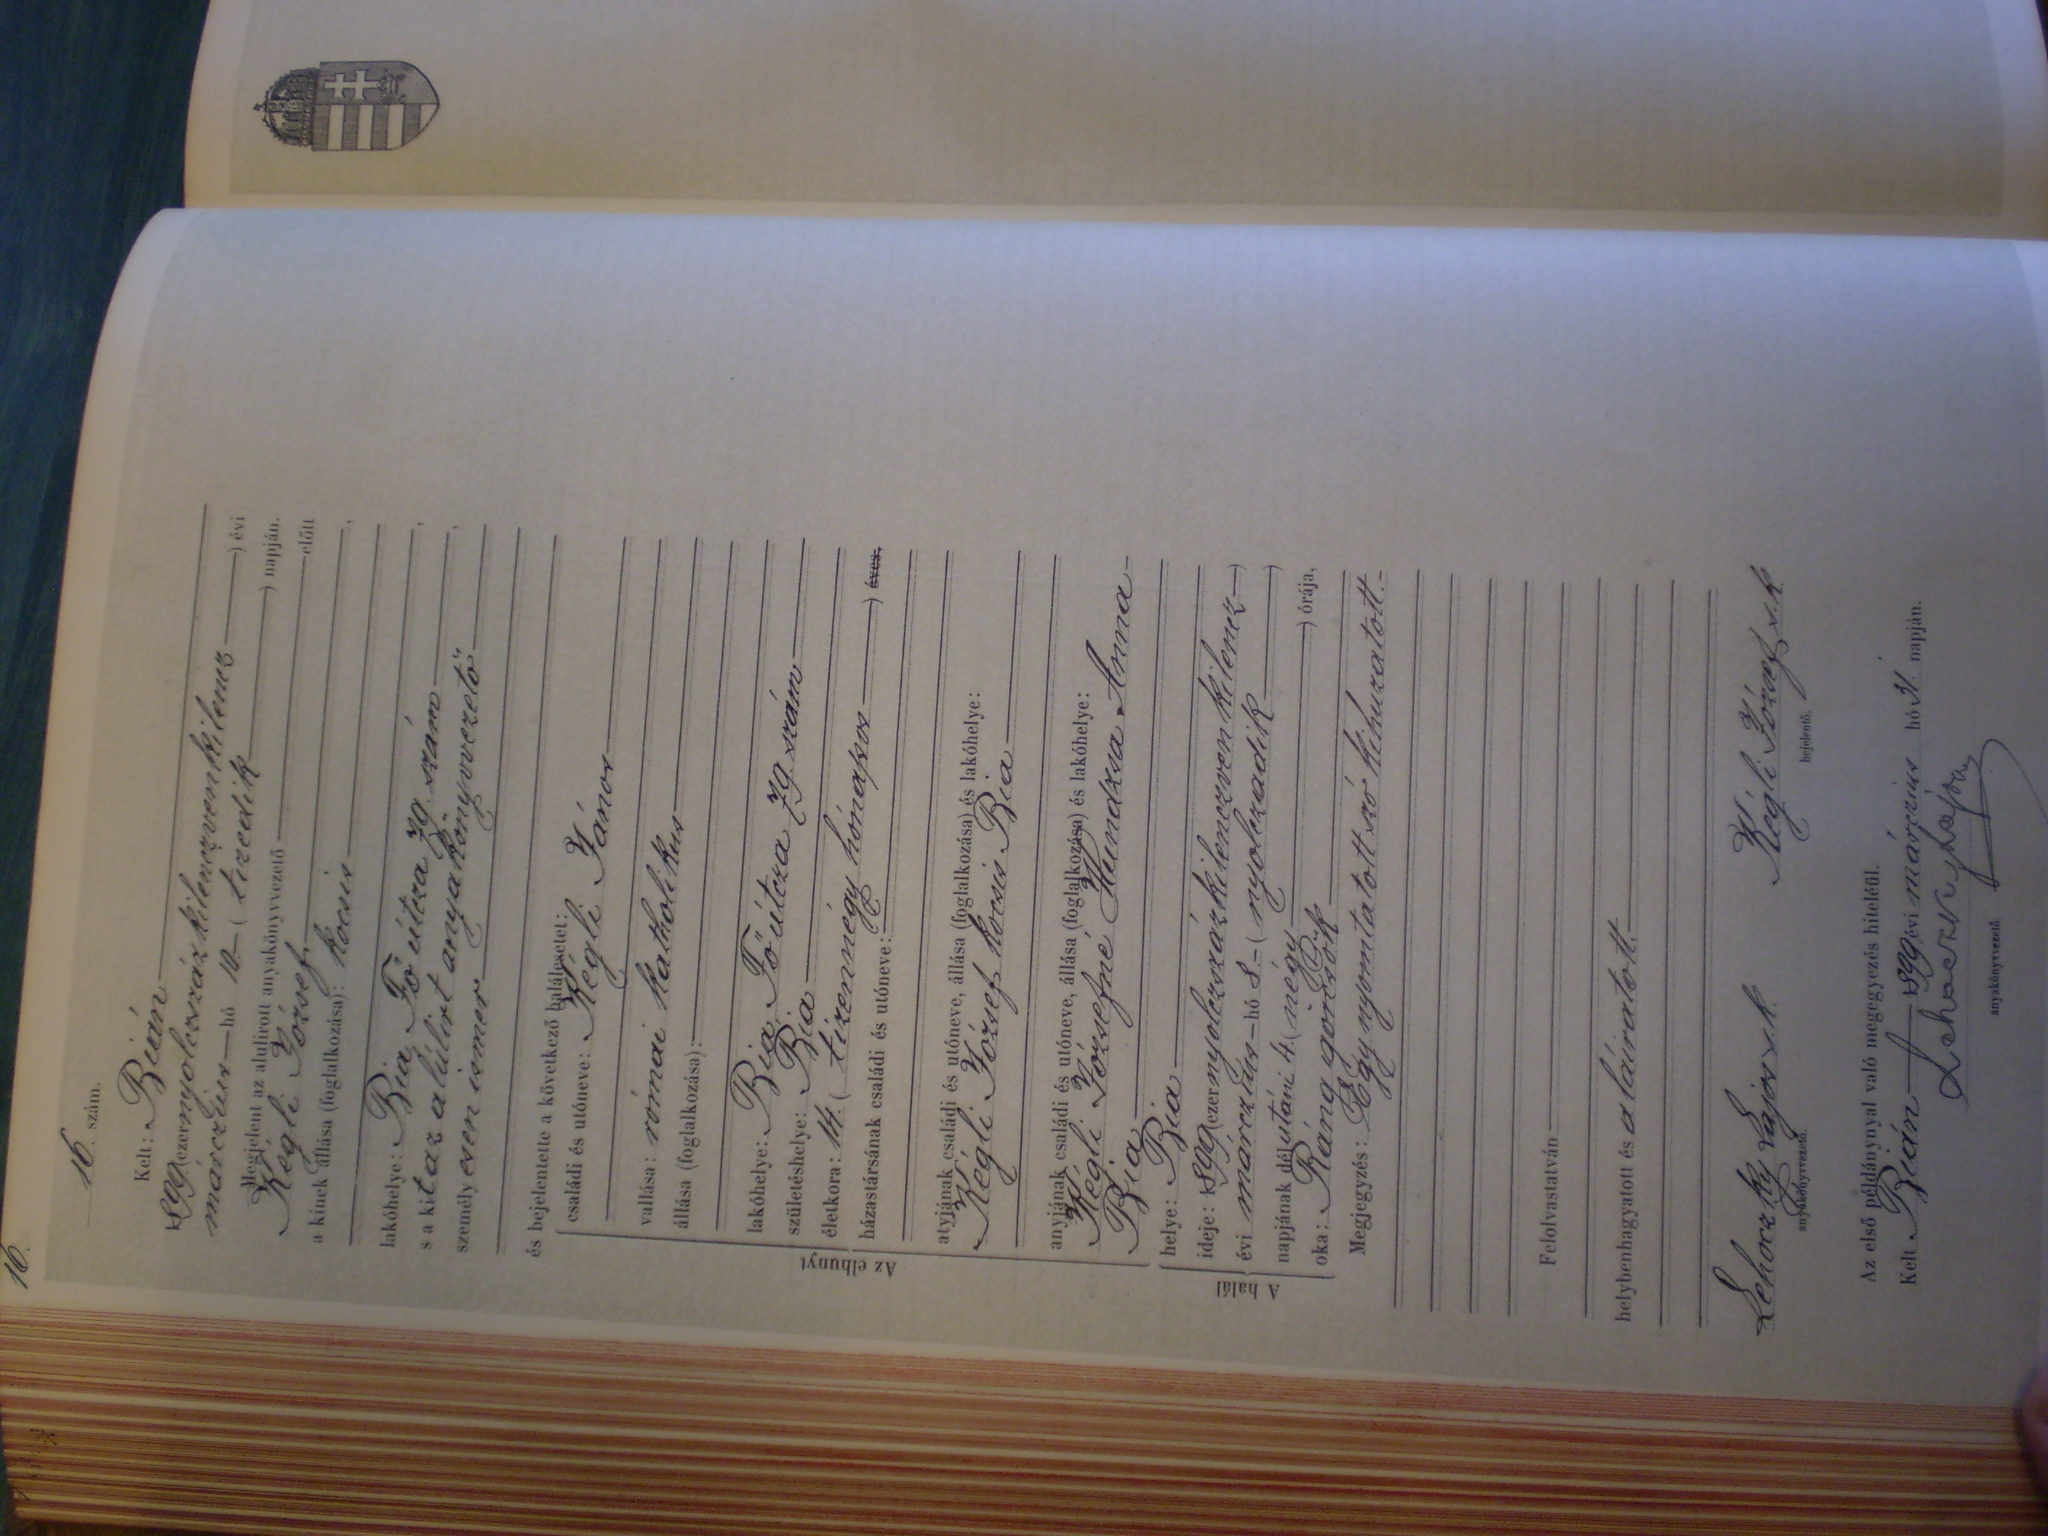 16.
16. szám.
Kelt: Bián
1899 (ezernyolczszázkilenczvenkilencz) évi
márczius hó 10. (tizedik) napján.
Megjelent az alulirott anyakönyvvezető előtt
Régli József
a kinek állása (foglalkozása): kocsis,
lakóhelye: Bia, Fő útcza 79. szám,
s a kit az alúlirt anyakönyvvezető,
személyesen ismer
és bejelentette a következő halálesetet:
Az elhunyt
családi és utóneve: Régli János
vallása: római katholikus
állása (foglalkozása):
lakóhelye: Bia, Fő útcza 79 szám
születéshelye: Bia
életkora: 14. (tizennégy hónapos) éves,
házastársának családi és utóneve:
atyjának családi és utóneve, állása (foglalkozása) és lakóhelye:
Régli József kocsis Bia
anyjának családi és utóneve, állása (foglalkozása) és lakóhelye:
Régli Józsefné Hundzsa Anna
Bia
A halál
helye: Bia
ideje: 1899 (ezernyolczszázkilenczvenkilencz)
évi márczius hó 8. (nyolczadik)
napjának délutáni 4. (négy) órája,
oka: Ráng görcsök
Megjegyzés: Egy nyomtatott szó kihuzatott.
Felolvastatván
helybenhagyatott és aláiratott.
Lehoczky Lajos s. k. Régli József s. k.
anyakönyvvezető. bejelentő.
Az első példánynyal való megegyezés hiteléül.
Kelt Bián 1899 évi márczius hó 31 napján.
Lehoczky Lajos
anyakönyvvezető